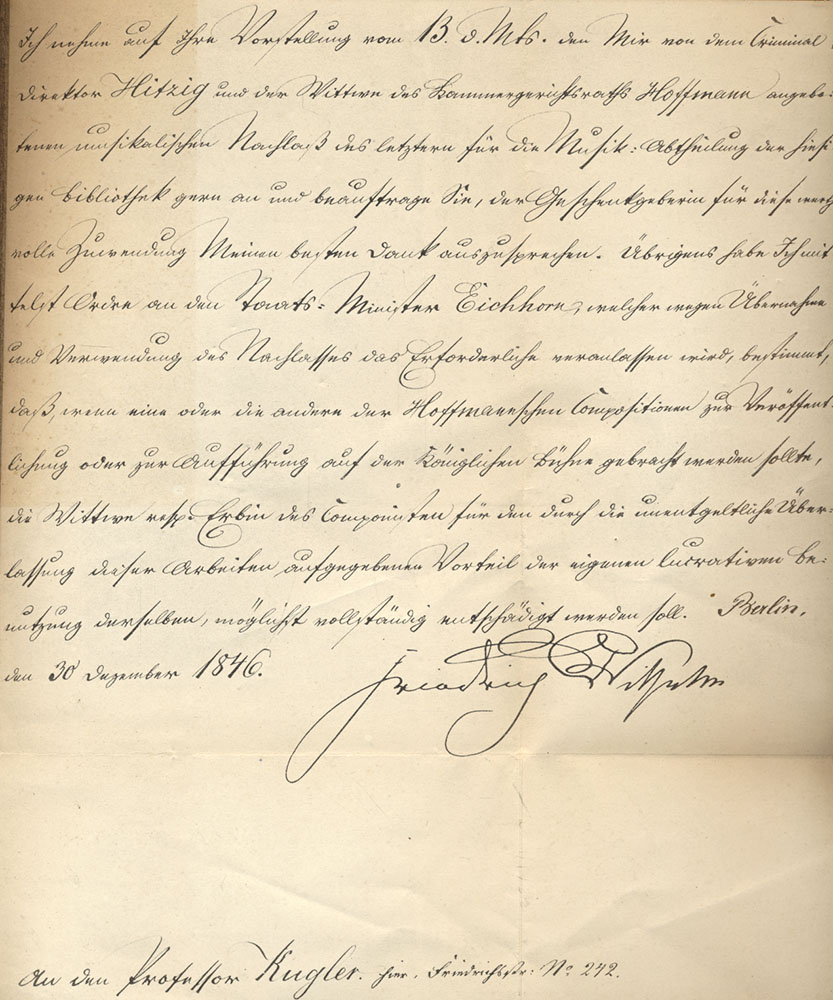 Ich nehme auf Ihre Vorstellung vom 13. d. Mts. den Mir von dem Criminal-
Direktor Hitzig und der Wittwe des Kammergerichtsraths Hoffmann angebo-
tenen musikalischen Nachlaß des letztern für die Musik-Abtheilung der hiesi
gen Bibliothek gern an und beauftrage Sie, der Geschenkgeberin für diese werth
volle Zuwendung Meinen besten Dank auszusprechen. Übrigens habe Ich mit
telst Ordre an den Staats-Minister Eichhorn, welcher wegen Übernahme
und Verwendung des Nachlasses das Erforderliche veranlassen wird, bestimmt,
daß, wenn eine oder die andere der Hoffmannschen Compositionen zur Veröffent
lichung oder zur Aufführung auf der Königlichen Bühne gebracht werden sollte,
die Wittwe resp. Erbin des Componisten für den durch die unentgeltliche Über-
lassung dieser Arbeiten aufgegebenen Vorteil der eigenen lucrativen Be-
nutzung derselben, möglichst vollständig entschädigt werden soll. Berlin,
den 30 Dezember 1846.
Friedrich Wilhelm
An den Professor Kugler. hier, Friedrichsstr: No 242.